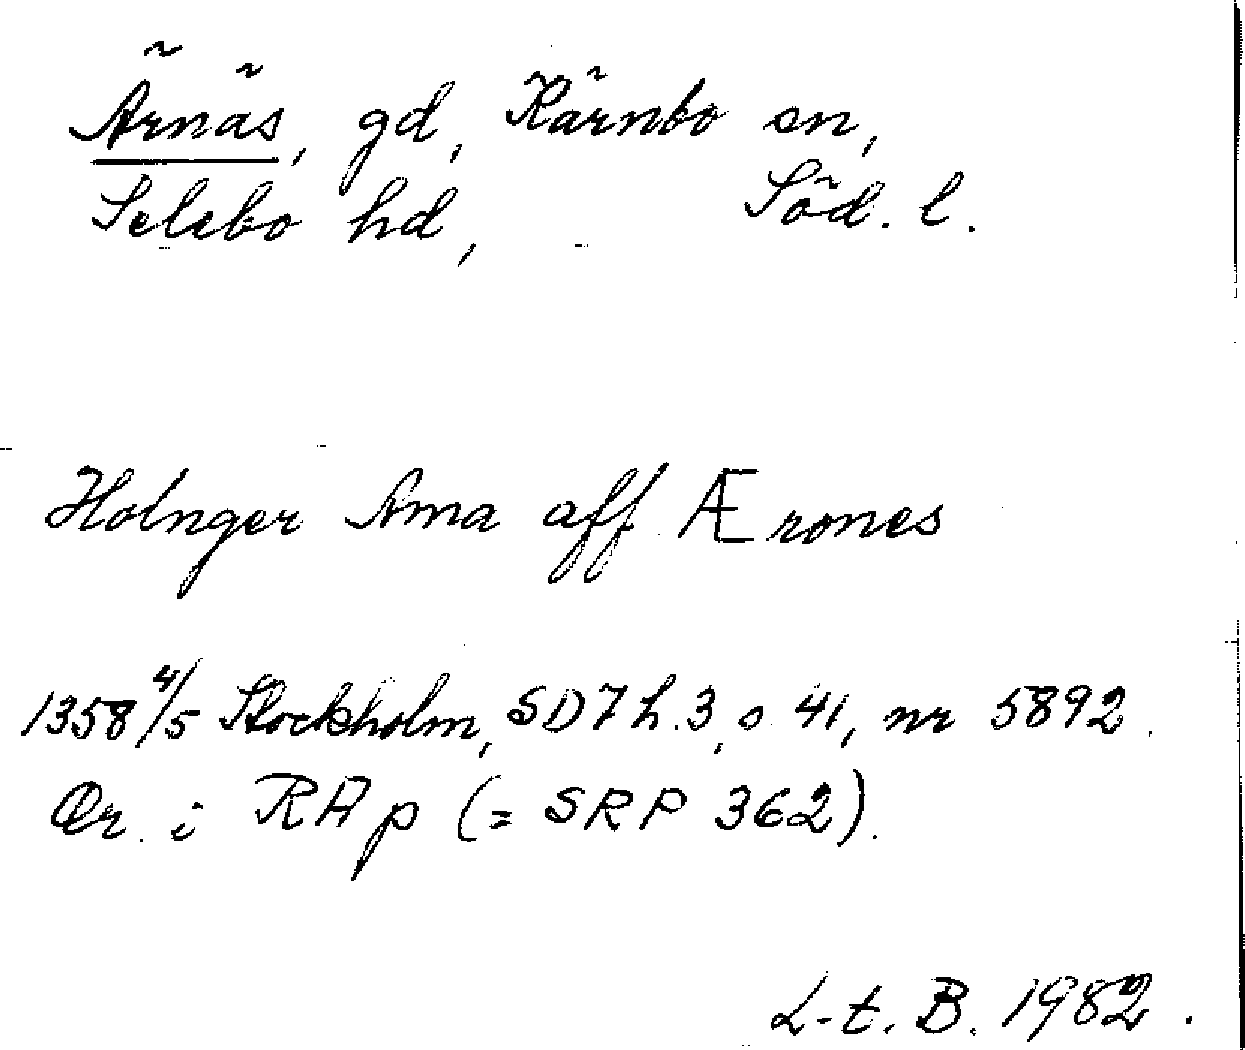 Ärnäs, gd, Kärnbo sn,
Selebo hd, Söd. l.
Holnger Ama aff Ærones
1358 4/5 Stockholm, SD 7 h. 3, s 41, nr 5892.
Or. i RAp (= SRP 362).
L-t. B. 1982.